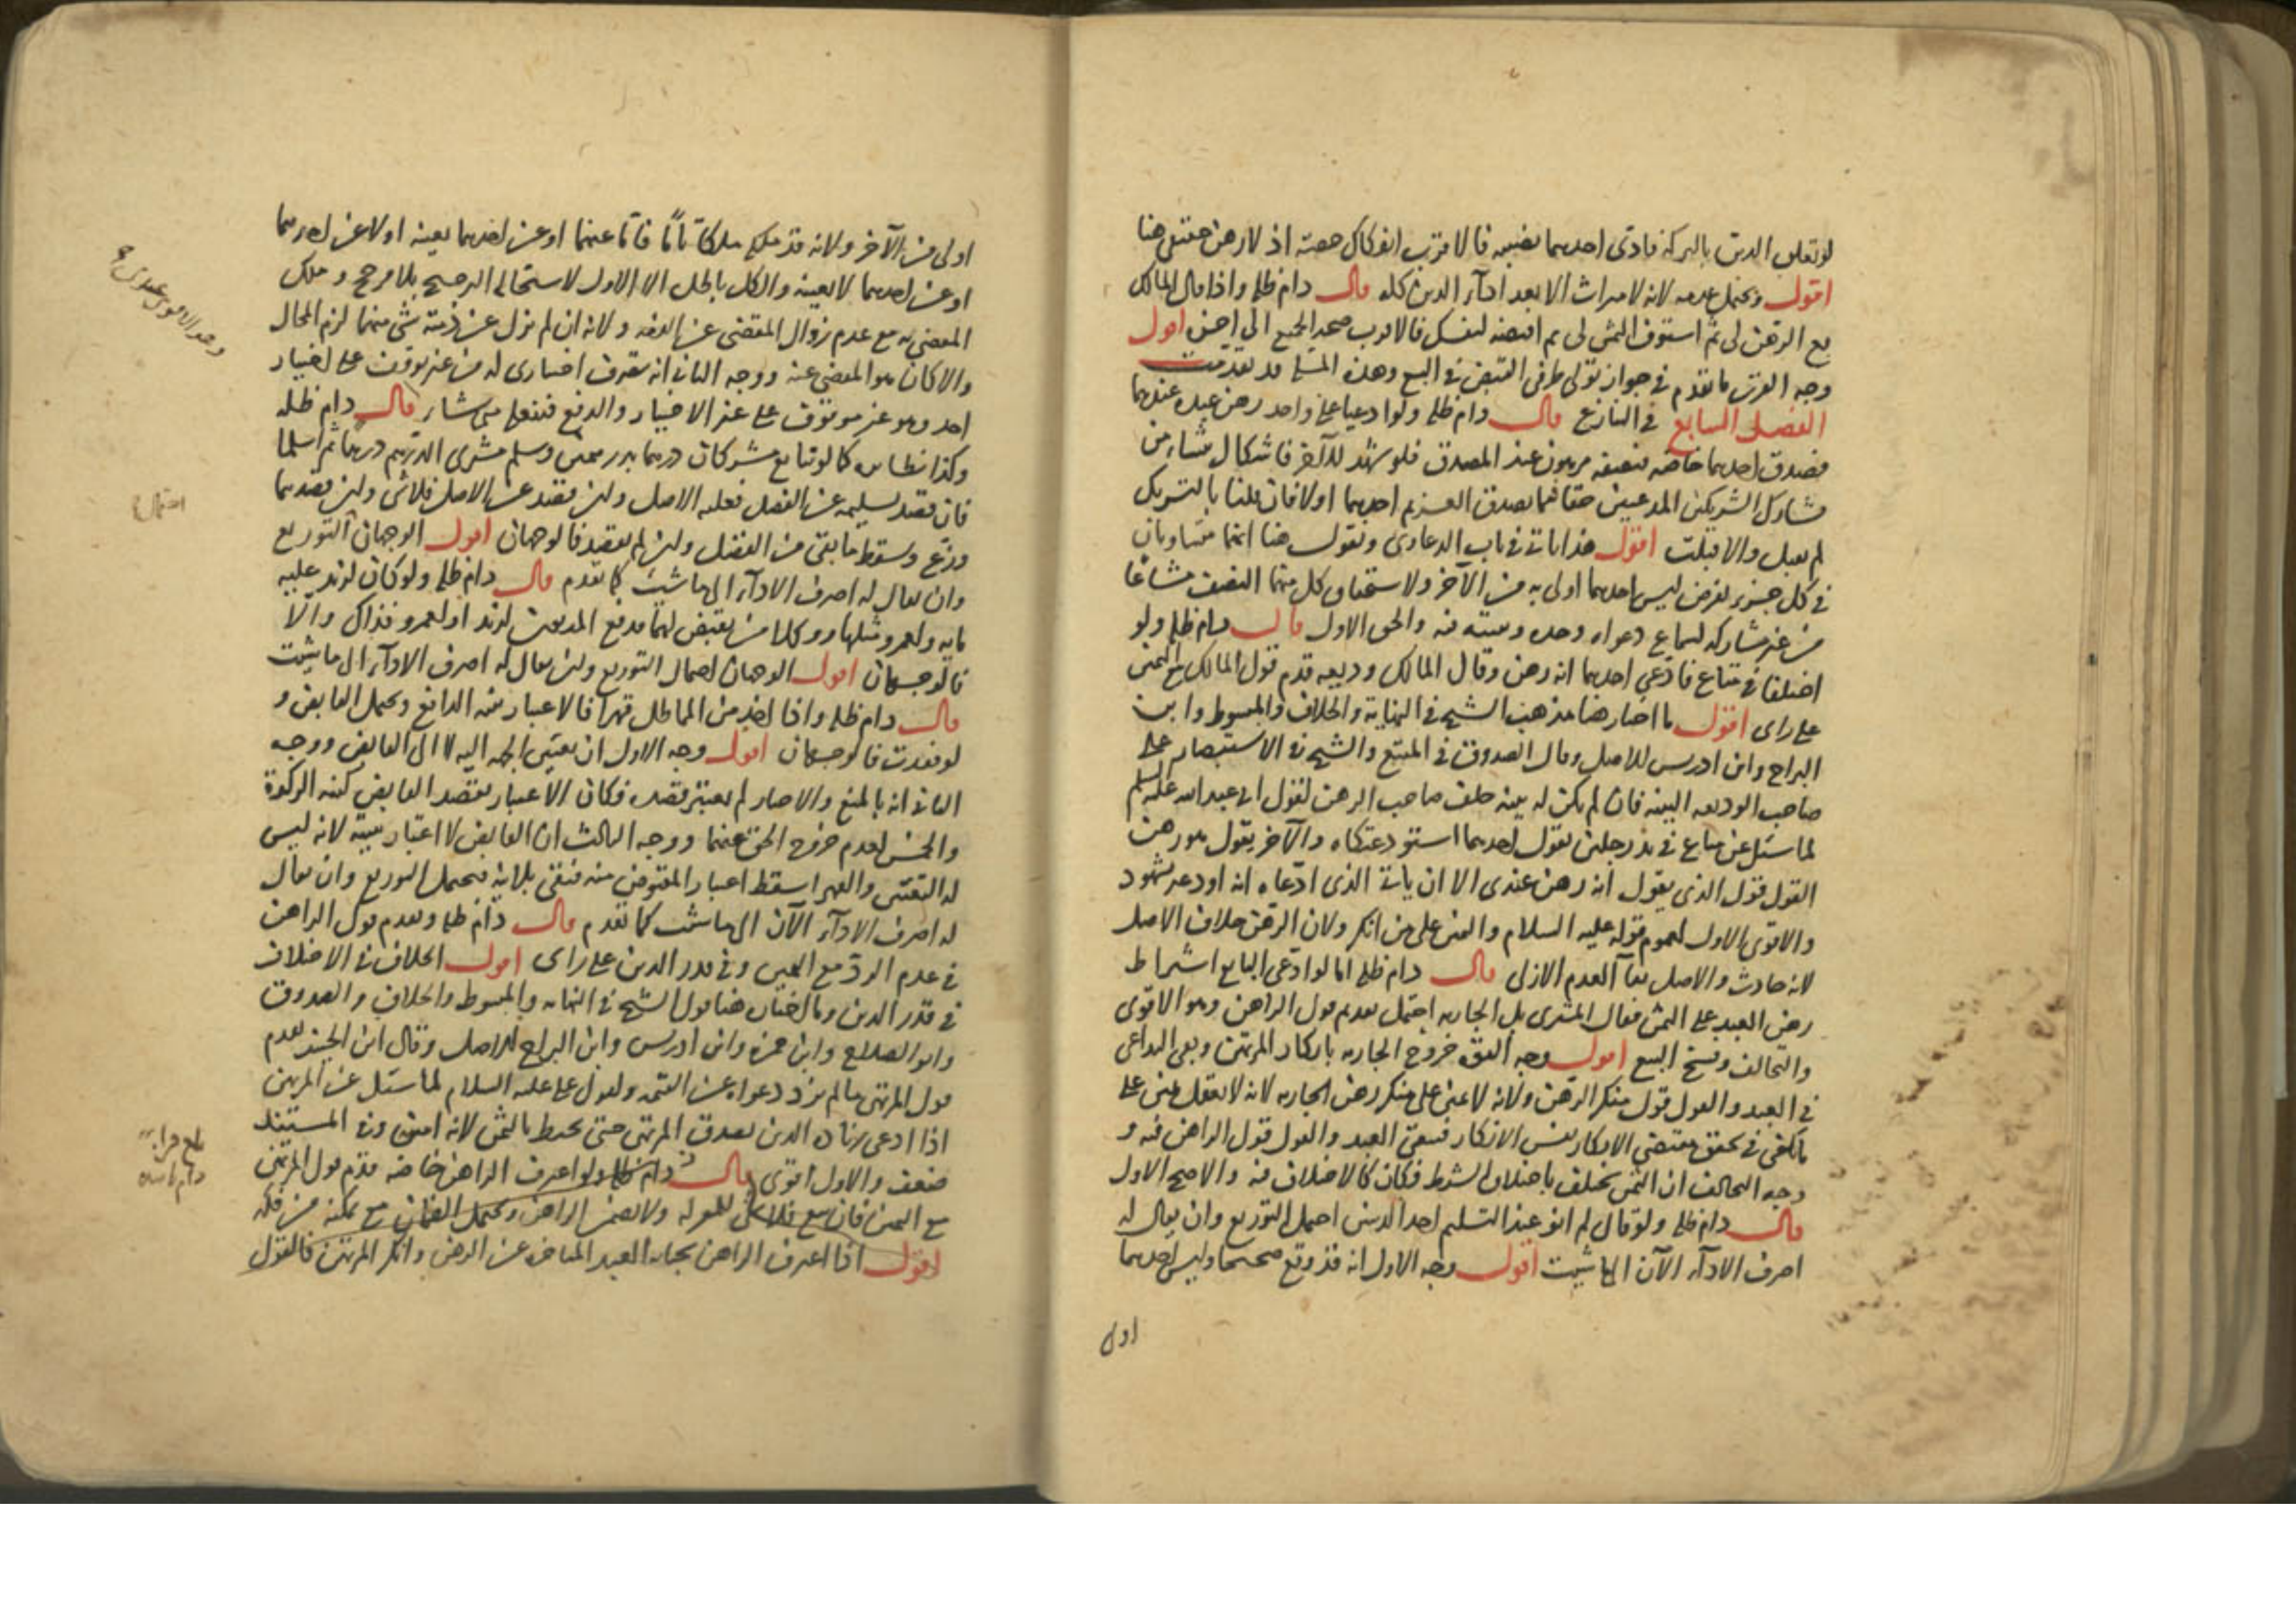 لو تعلق الدين بالتركة فادى احدهما نصيبه فالاقرب انفكاك حصته اذ لا رهن حقيقى هنا
اقول ويحتمل عدمه لانه لا ميراث الا بعد اداء الدين كله قال دام ظله واذا قال المالك
بع الرهن لى ثم استوف الثمن لى ثم اقبضه لنفسك فالاقرب صحة الجميع الى اخره اقول
وجه القرب ما تقدم فى جواز تولى طرفى القبض فى البيع وهذه المسئلة قد تقدمت
الفصل السابع فى التنازع قال دام ظله ولو ادعيا على واحد رهن عبده عندهما
فصدق احدهما خاصه فنصفه مرهون عند المصدق فلو شهد للآخر فاشكال ينشاء من
تشارك الشريكين المدعيين حقا فيما يصدق الغريم احدهما اولا فان قلنا بالتشريك
لم يقبل والا قبلت اقول هذا ياتى فى باب الدعاوى ونقول هنا انهما متساويان
فى كل جزء يفرض ليس احدهما اولى به من الآخر ولاستحقاق كل منهما النصف مشاعا
من غير مشاركه لسماع دعواه وحده وبينته فيه والحق الاول قال دام ظله ولو
اختلفا فى متاع فادعى احدهما انه رهن وقال المالك وديعه قدم قول المالك مع اليمين
على راى اقول ما اختار هنا مذهب الشيخ فى النهاية والخلاف والمبسوط وابن
البراج وابن ادريس للاصل وقال الصدوق فى المقنع والشيخ فى الاستبصار على
صاحب الوديعه البينه فان لم يكن له بينه حلف صاحب الرهن لقول ابى عبد الله عليه السلم
لما سئل عن متاع فى يد رجلين يقول احدهما استودعتكاه والآخر يقول هو رهن
القول قول الذى يقول انه رهن عندى الا ان ياتى الذى ادعاه انه اودعه بشهود
والاقوى الاول لعموم قوله عليه السلام واليمين على من انكر ولان الرهن خلاف الاصل
لانه حادث والاصل بقاء العدم الازلى قال دام ظله اما لو ادعى البايع اشتراط
رهن العبد على الثمن فقال المشترى بل الجاريه احتمل تقديم قول الراهن وهو الاقوى
والتحالف وفسخ البيع اقول وجه القوة خروج الجاريه بانكار المرتهن وبقى التداعى
فى العبد والقول قول منكر الرهن ولانه لا يمين على منكر رهن الجاريه لانه لا يعقل يمين على
ما يكفى فى تحقق مقتضى الانكار نفس الانكار فبقى العبد والقول قول الراهن فيه و
وجه التحالف ان الثمن يختلف باختلاف الشرط فكان كالاختلاف فيه والاصح الاول
قال دام ظله ولو قال لم انو عند التسليم احد الدينين احتمل التوزيع وان يقال له
اصرف الاداء الآن الى ما شيت اقول وجه الاول انه قد وقع صحيحا وليس احدهما
اولى
اولى من الآخر ولانه قد ملكه ملكا تاما فاما عنهما او عن احدهما بعينه اولا عن احدهما
او عن احدهما لا بعينه والكل باطل الا الاول لاستحالة الترجيح بلا مرجح وملك
المقضى به مع عدم زوال المقتضى عن الدفعه ولانه ان لم يزل عن ذمته شى منهما لزم المحال
والا كان هو المقضى عنه ووجه الثانى انه تصرف اختيارى له من غير توقف على اختيار
احد وهو غير موقوف على غير الاختيار والدفع فيفعله متى شاء قال دام ظله
وكذا نظايره كما لو تبايع مشركان درهما بدرهمين وسلم مشترى الدرهم درهما ثم اسلما
فان قصد تسليمه عن الفضل فعليه الاصل وان قصد عن الاصل فلا شى وان قصدهما
وزع وسقط ما بقى من الفضل وان لم يقصد فالوجهان اقول الوجهان التوزيع
وان يقال له اصرف الاداء الى ما شيت كما تقدم قال دام ظله ولو كان لزيد عليه
مايه ولعمرو مثلها ووكلا من يقبض لهما فدفع المديون لزيد او لعمرو فذاك والا
فالوجهان اقول الوجهان احتمال التوزيع وان يقال له اصرف الاداء الى ما شيت
قال دام ظله واذا اخذ من المماطل قهرا فالاعتبار بنية الدافع ويحتمل القابض و
لو فقدت فالوجهان اقول وجه الاول ان تعيين الجهه اليه لا الى القابض ووجه
الثانى انه بالمنع والاجبار لم يعتبر قصده فكان الاعتبار بقصد القابض كنيه الزكوة
والخمس لعدم خروج الحق عنهما ووجه الثالث ان القابض لا اعتبار بنيته لانه ليس
له التعيين والقهر اسقط اعتبار المقبوض منه فبقى بلا نية فيحتمل التوزيع وان يقال
له اصرف الاداء الآن الى ما شيت كما تقدم قال دام ظله ويقدم قول الراهن
فى عدم الرد مع اليمين وفى قدر الدين على راى اقول الخلاف فى الاختلاف
فى قدر الدين وما اختاره هنا قول الشيخ فى النهايه والمبسوط والخلاف والصدوق
وابو الصلاح وابن حمزه وابن ادريس وابن البراج للاصل وقال ابن الجنيد يقدم
قول المرتهن ما لم يزد دعواه عن القيمه ولقول على عليه السلام لما سئل عن المرتهن
اذا ادعى زياده الدين يصدق المرتهن حتى يحيط بالثمن لانه امين وفى المستند
ضعف والاول اقوى قال دام ظله ولو اعترف الراهن خاصه قدم قول المرتهن
مع اليمين فان بيع فلا شى للمقر له ولا يضمن الراهن ويحتمل الضمان مع تمكنه من فكه
اقول اذا اعترف الراهن بجنايه العبد المتاخر عن الرهن وانكر المرتهن فالقول
احتمال